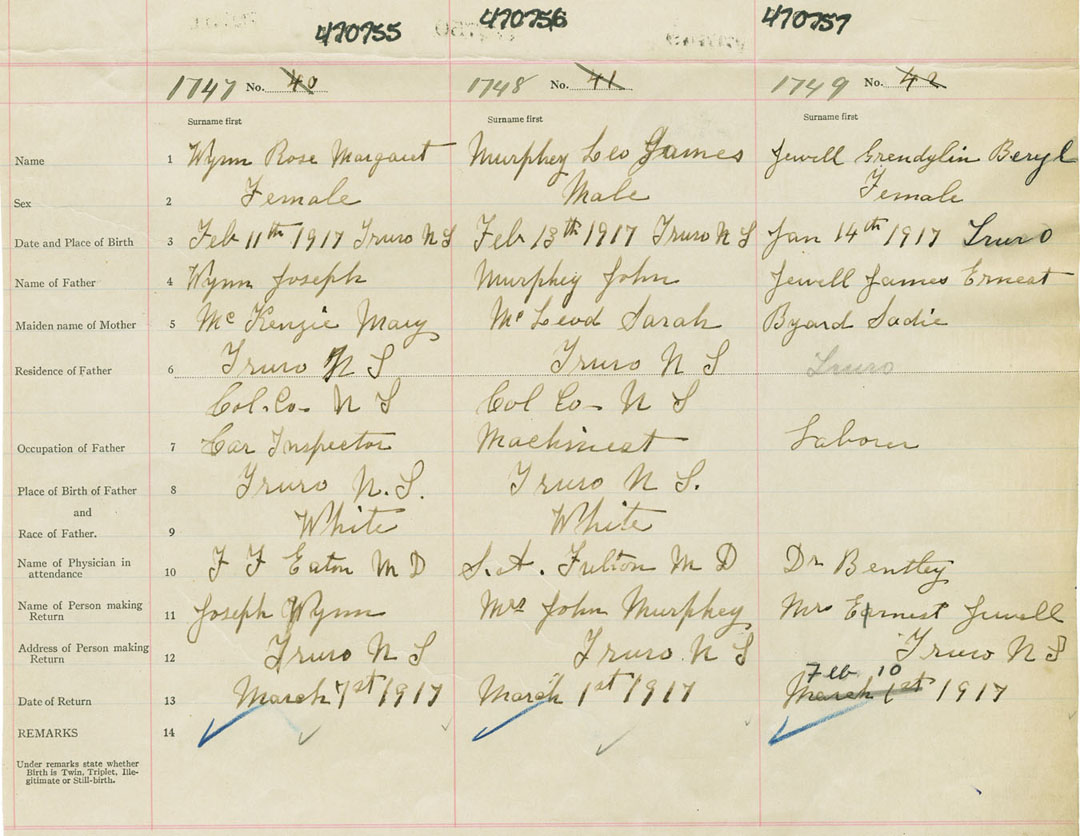 470755 470756 470757
1747 No. 40 1748 No. 41 1749 No. 42
Surname first Surname first Surname first
Name 1 Wynn Rose Margaret Murphey Leo James Jewell Grendylin Beryl
Sex 2 Female Male Female
Date and Place of Birth 3 Feb 11th 1917 Truro N S Feb 13th 1917 Truro N S Jan 14th 1917 Truro
Name of Father 4 Wynn Joseph Murphey John Jewell James Ernest
Maiden name of Mother 5 Mc Kenzie Mary Mc Leod Sarah Byard Sadie
Residence of Father 6 Truro N S Truro N S Truro
Col. Co- N S Col Co- N S
Occupation of Father 7 Car Inspector Machinest Laborer
Place of Birth of Father 8 Truro N.S. Truro N S.
and
Race of Father. 9 White White
Name of Physician in
attendance 10 F F Eaton M D S. A. Fulton M D Dr Bentley
Name of Person making
Return 11 Joseph Wynn Mrs John Murphey Mrs Earnest Jewell
Address of Person making
Return 12 Truro N S Truro N S Truro N S
Feb 10
Date of Return 13 March 1st 1917 March 1st 1917 March 1st 1917
REMARKS 14
Under remarks state whether
Birth is Twin, Triplet, Ille-
gitimate or Still-birth.